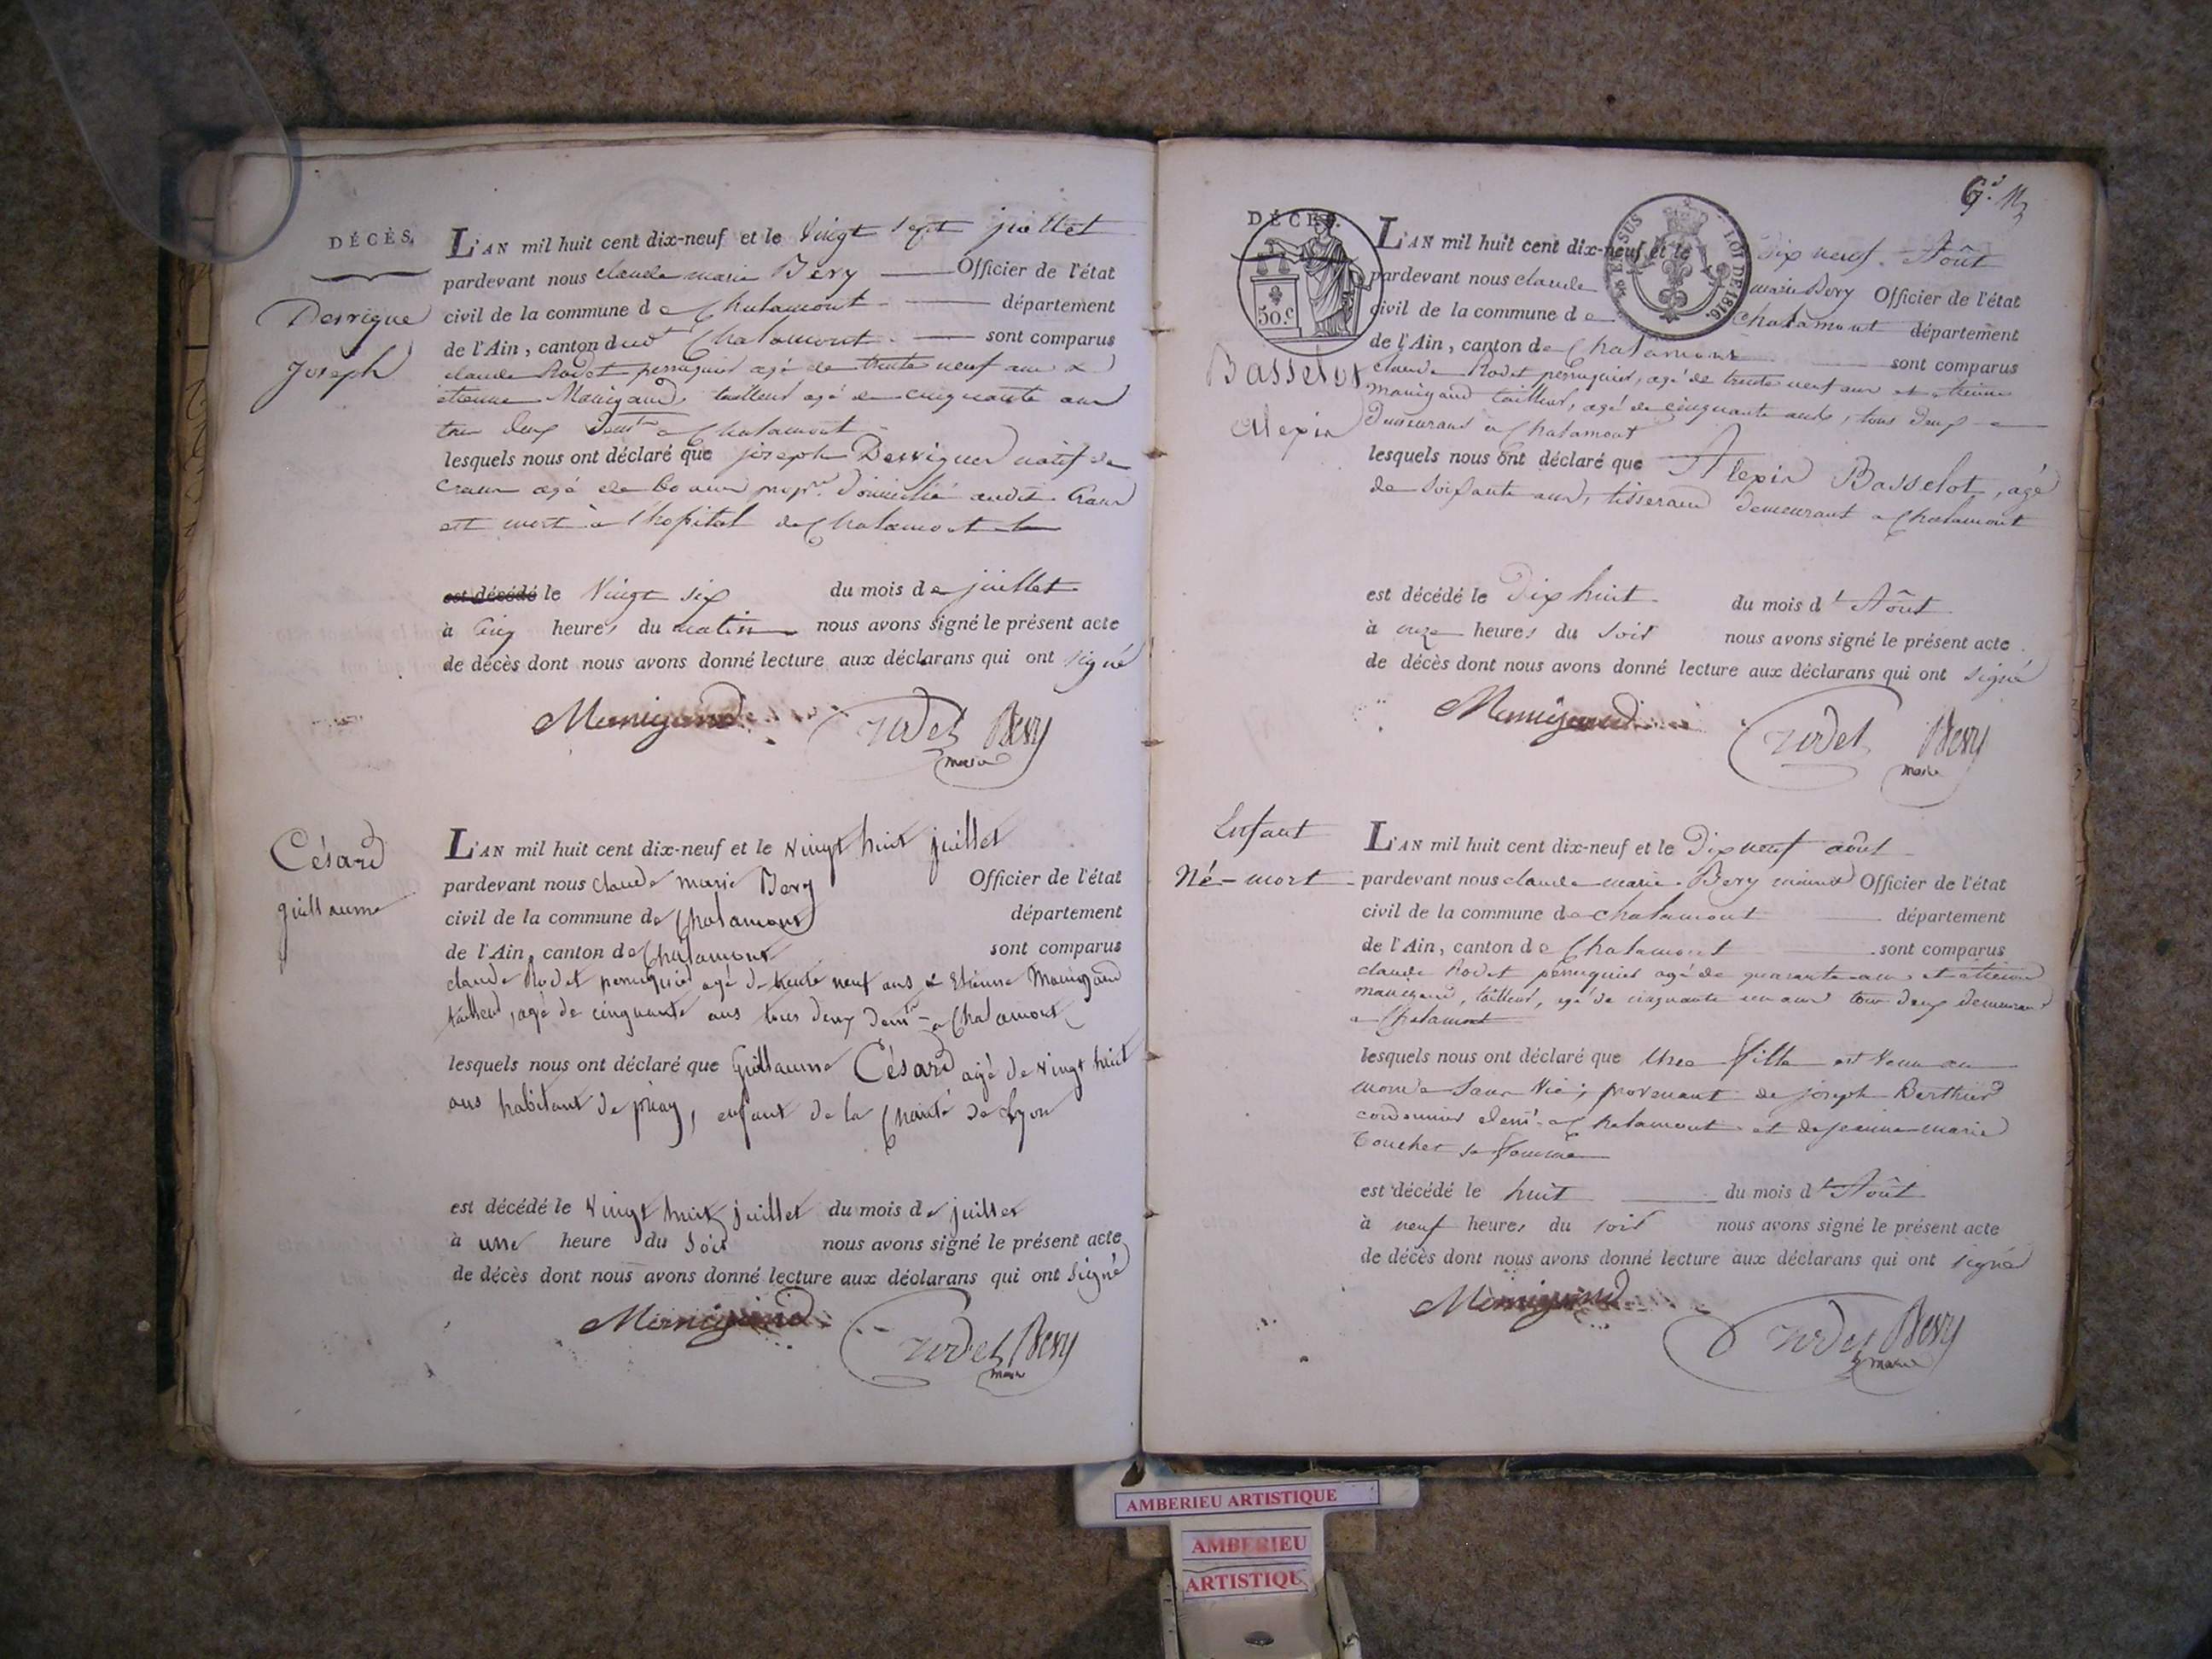 DÉCÈS.
Derrigue
Joseph
L'AN mil huit cent dix-neuf et le Vingt sept juillet
pardevant nous claude marie Bery Officier de l'état
civil de la commune de Chalamont département
de l'Ain, canton dud Chalamont sont comparus
claude Rodet perruquier agé de trente neuf ans &
étienne Manigand, tailleur agé de cinquante ans
deux a Chalamont
lesquels nous ont déclaré que joseph natif de
Crans agé de 60 ans propre. domicilié audit Crans
est mort à l'hopital de Chalamont le
est décédé le Vingt six du mois de juillet
à Cinq heures du matin nous avons signé le présent acte
de décès dont nous avons donné lecture aux déclarans qui ont signé
Manigand Rodet Bery
maire
Césard
guillaume
L'AN mil huit cent dix-neuf et le Vingt huit juillet
pardevant nous claude marie Bery Officier de l'état
civil de la commune de Chalamont département
de l'Ain, canton de Chalamont sont comparus
claude Rodet perruquier agé de trente neuf ans & Etienne Manigand
tailleur, agé de cinquante ans tous deux demts a Chalamont
lesquels nous ont déclaré que Guillaume Césard agé de Vingt huit
ans habitant de priay, enfant de la Charité de Lyon
est décédé le Vingt huit juillet du mois de juillet
à une heure du Soir nous avons signé le présent acte
de décès dont nous avons donné lecture aux déclarans qui ont Signé
Manigand Rodet Bery
maire
DÉCÈS.
50.c
EN SUS LOI DE 1816.
Basselot
Alexis
L'AN mil huit cent dix-neuf et le Dix neuf Aôut
pardevant nous claude marie Bery Officier de l'état
civil de la commune de Chalamont département
de l'Ain, canton de Chalamont sont comparus
claude Rodet perruquier, agé de trente neuf ans et etienne
Manigand tailleur, agé de cinquante ans, tous deux
Demeurant a Chalamont
lesquels nous ont déclaré que Alexis Basselot, agé
de Soixante ans, tisserand demeurant a Chalamont
est décédé le Dix huit du mois d'Aôut
à onze heures du Soir nous avons signé le présent acte
de décès dont nous avons donné lecture aux déclarans qui ont Signé
Manigand Rodet Bery
maire
Enfant
Né-mort
L'AN mil huit cent dix-neuf et le Dix neuf aôut
pardevant nous claude marie Bery Officier de l'état
civil de la commune de chalamont département
de l'Ain, canton de Chalamont sont comparus
claude Rodet perruquier agé de quarante ans et etienne
manigand, tailleur, agé de cinquante un ans tous deux demeurant
a Chalamont
lesquels nous ont déclaré que Une fille est Venu au
monde Sans Vie; provenant de joseph Berthier
cordonnier demt. a Chalamont et de jeanne marie
Bouchet sa femme
est décédé le huit du mois d'Aôut
à neuf heures du soir nous avons signé le présent acte
de décès dont nous avons donné lecture aux déclarans qui ont signé
Manigand Rodet Bery
maire
AMBERIEU ARTISTIQUE
AMBERIEU
ARTISTIQUE